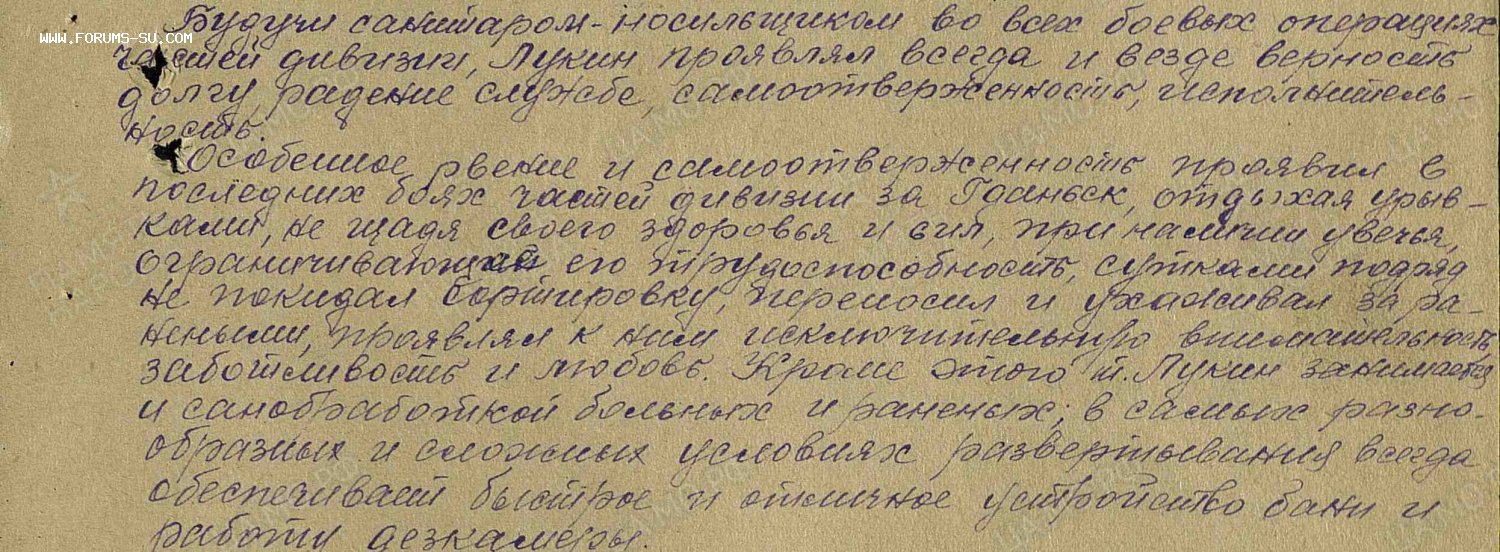 Будучи санитаром-носильщиком во всех боевых операциях
WWW.FORUMS-SU.COM
частей дивизии, Лукин проявлял всегда и везде верность
долгу, радение службе, самоотверженность, исполнитель-
ность.
Особенное рвение и самоотверженность проявил в
последних боях частей дивизии за Гданьск, отдыхая урыв-
ками, не щадя своего здоровья и сил, при наличии увечья,
ограничивающая его трудоспособность, сутками подряд
не покидал сортировку, переносил и ухаживал за ра-
неными, проявлял к ним исключительную внимательность,
заботливость и любовь. Кроме этого т. Лукин занимается
и санобработкой больных и раненых; в самых разно-
образных и сложных условиях развертывания всегда
обеспечивает быстрое и отличное устройство бани и
работу дезкамеры.